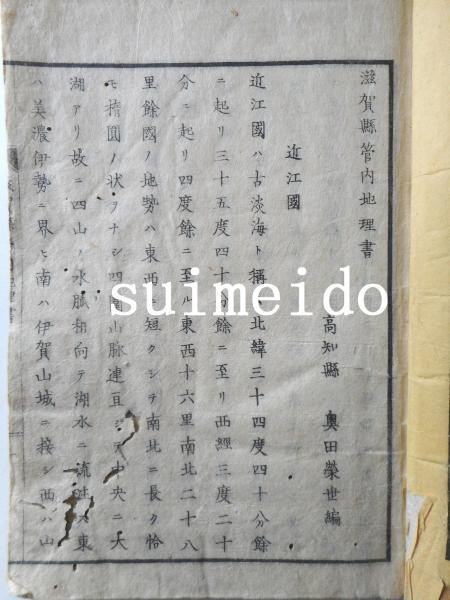 滋賀縣管内地理書
高知縣 奥田榮世編
近江國
近江國ハ古淡海ト稱ス北緯三十四度四十分餘
ニ起リ三十五度四十分餘ニ至リ西經三度二十
分ニ起リ四度餘ニ至ル東西十六里南北二十八
里餘國ノ地勢ハ東西ニ短クシテ南北ニ長ク恰
モ楕圓ノ状ヲナシ四圍山脈連亘シテ中央ニ大
湖アリ故ニ四山ノ水脈相向テ湖水ニ流注ス東
ハ美濃伊勢ニ界ヒ南ハ伊賀山城ニ接シ西ハ山
suimeido